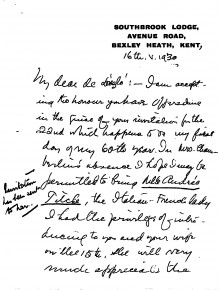 SOUTHBROOK LODGE,
AVENUE ROAD,
BEXLEY HEATH, KENT,
16th. V. 1930
My dear de :- I am accept-
ing the honour you have offered me
in the of your invitation for the
22nd which happens to be my final
day of my 60th year. In Mrs. Cham-
berlin's absence I hope I may be
permitted to bring Mlle Andrée
Invitation
has been sent
to her.
, the Italian-French lady
I had the privilege of intro-
ducing to you and your wife
on the 15th. She will very
much appreciate the